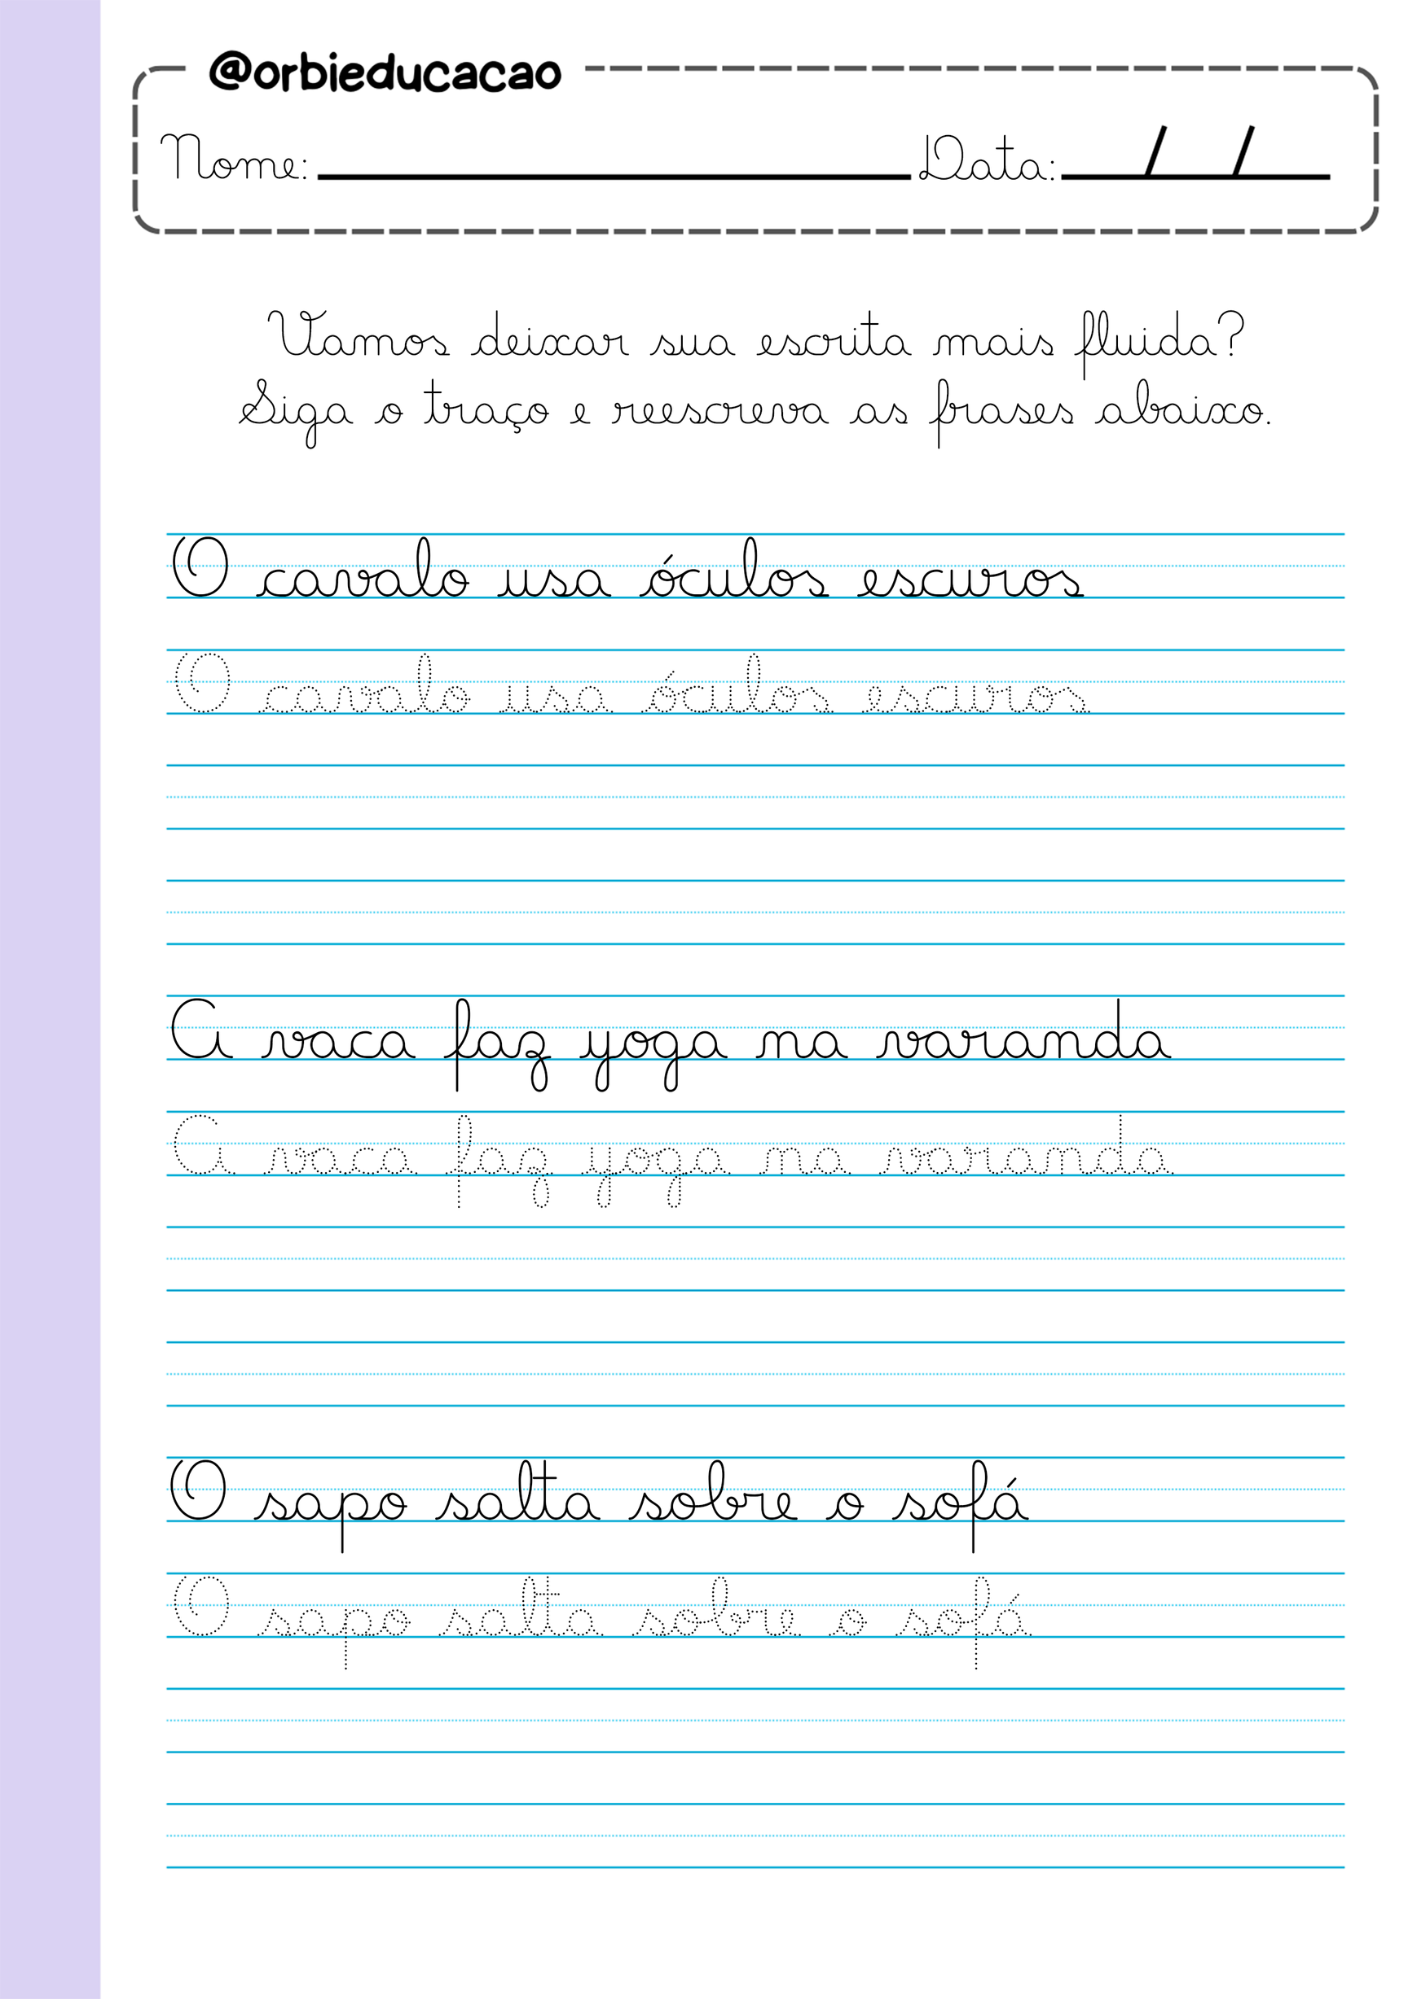 @orbieducacao
Nome: Data: / /
Vamos deixar sua escrita mais fluida?
Siga o traço e reescreva as frases abaixo.
O cavalo usa óculos escuros
O cavalo usa óculos escuros
A vaca faz yoga na varanda
A vaca faz yoga na varanda
O sapo salta sobre o sofá
O sapo salta sobre o sofá